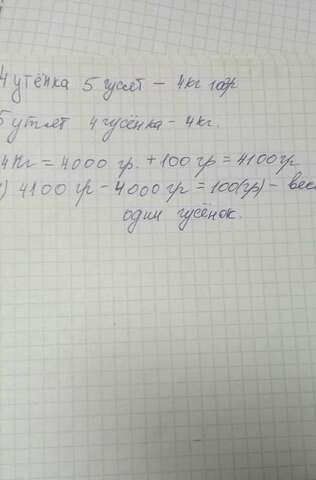 4 утёнка 5 гусят - 4кг 100гр
5 утят 4 гусёнка - 4кг.
4кг = 4000 гр. + 100 гр = 4100 гр
) 4100 гр - 4000 гр = 100(гр) - веси
один гусёнок.